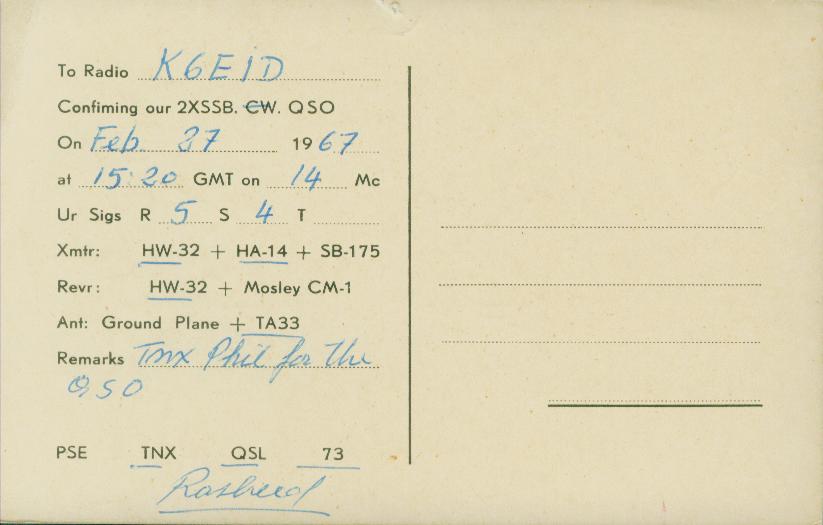 To Radio K6EID
Confiming our 2XSSB. CW. QSO
On Feb. 27 1967
at 15:20 GMT on 14 Mc
Ur Sigs R 5 S 4 T
Xmtr: HW-32 + HA-14 + SB-175
Revr: HW-32 + Mosley CM-1
Ant: Ground Plane + TA33
Remarks Tnx Phil for the
QSO
PSE TNX QSL 73